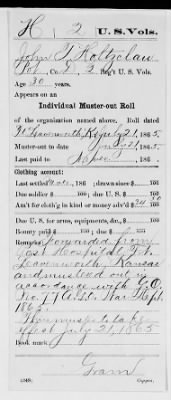 H 2 U.S. Vols.
John T. Holtzclaw
Pvt, Co. , 2 Reg't U.S. Vols.
Age 30 years.
Appears on an
Individual Muster-out Roll
of the organization named above. Roll dated
Ft Leavenworth, Ks July 21, 1865.
Muster-out to date July 21, 1865.
Last paid to , 186 .
Clothing account:
Last settled , 186 ; drawn since $ 100
Due soldier $ 100; due U.S. $ 100
Am't for cloth'g in kind or money adv'd $ 100
Due U.S. for arms, equipments, &c., $ 100
Bounty paid $ 100; due $ 100
Remarks: Forwarded from
Post Hospital Ft.
Leavenworth, Kansas
and mustered out in
accordance with G.O.
War Dept.
1865.
to take
effect July 21, 1865
Book mark:
Gram
Copyist.